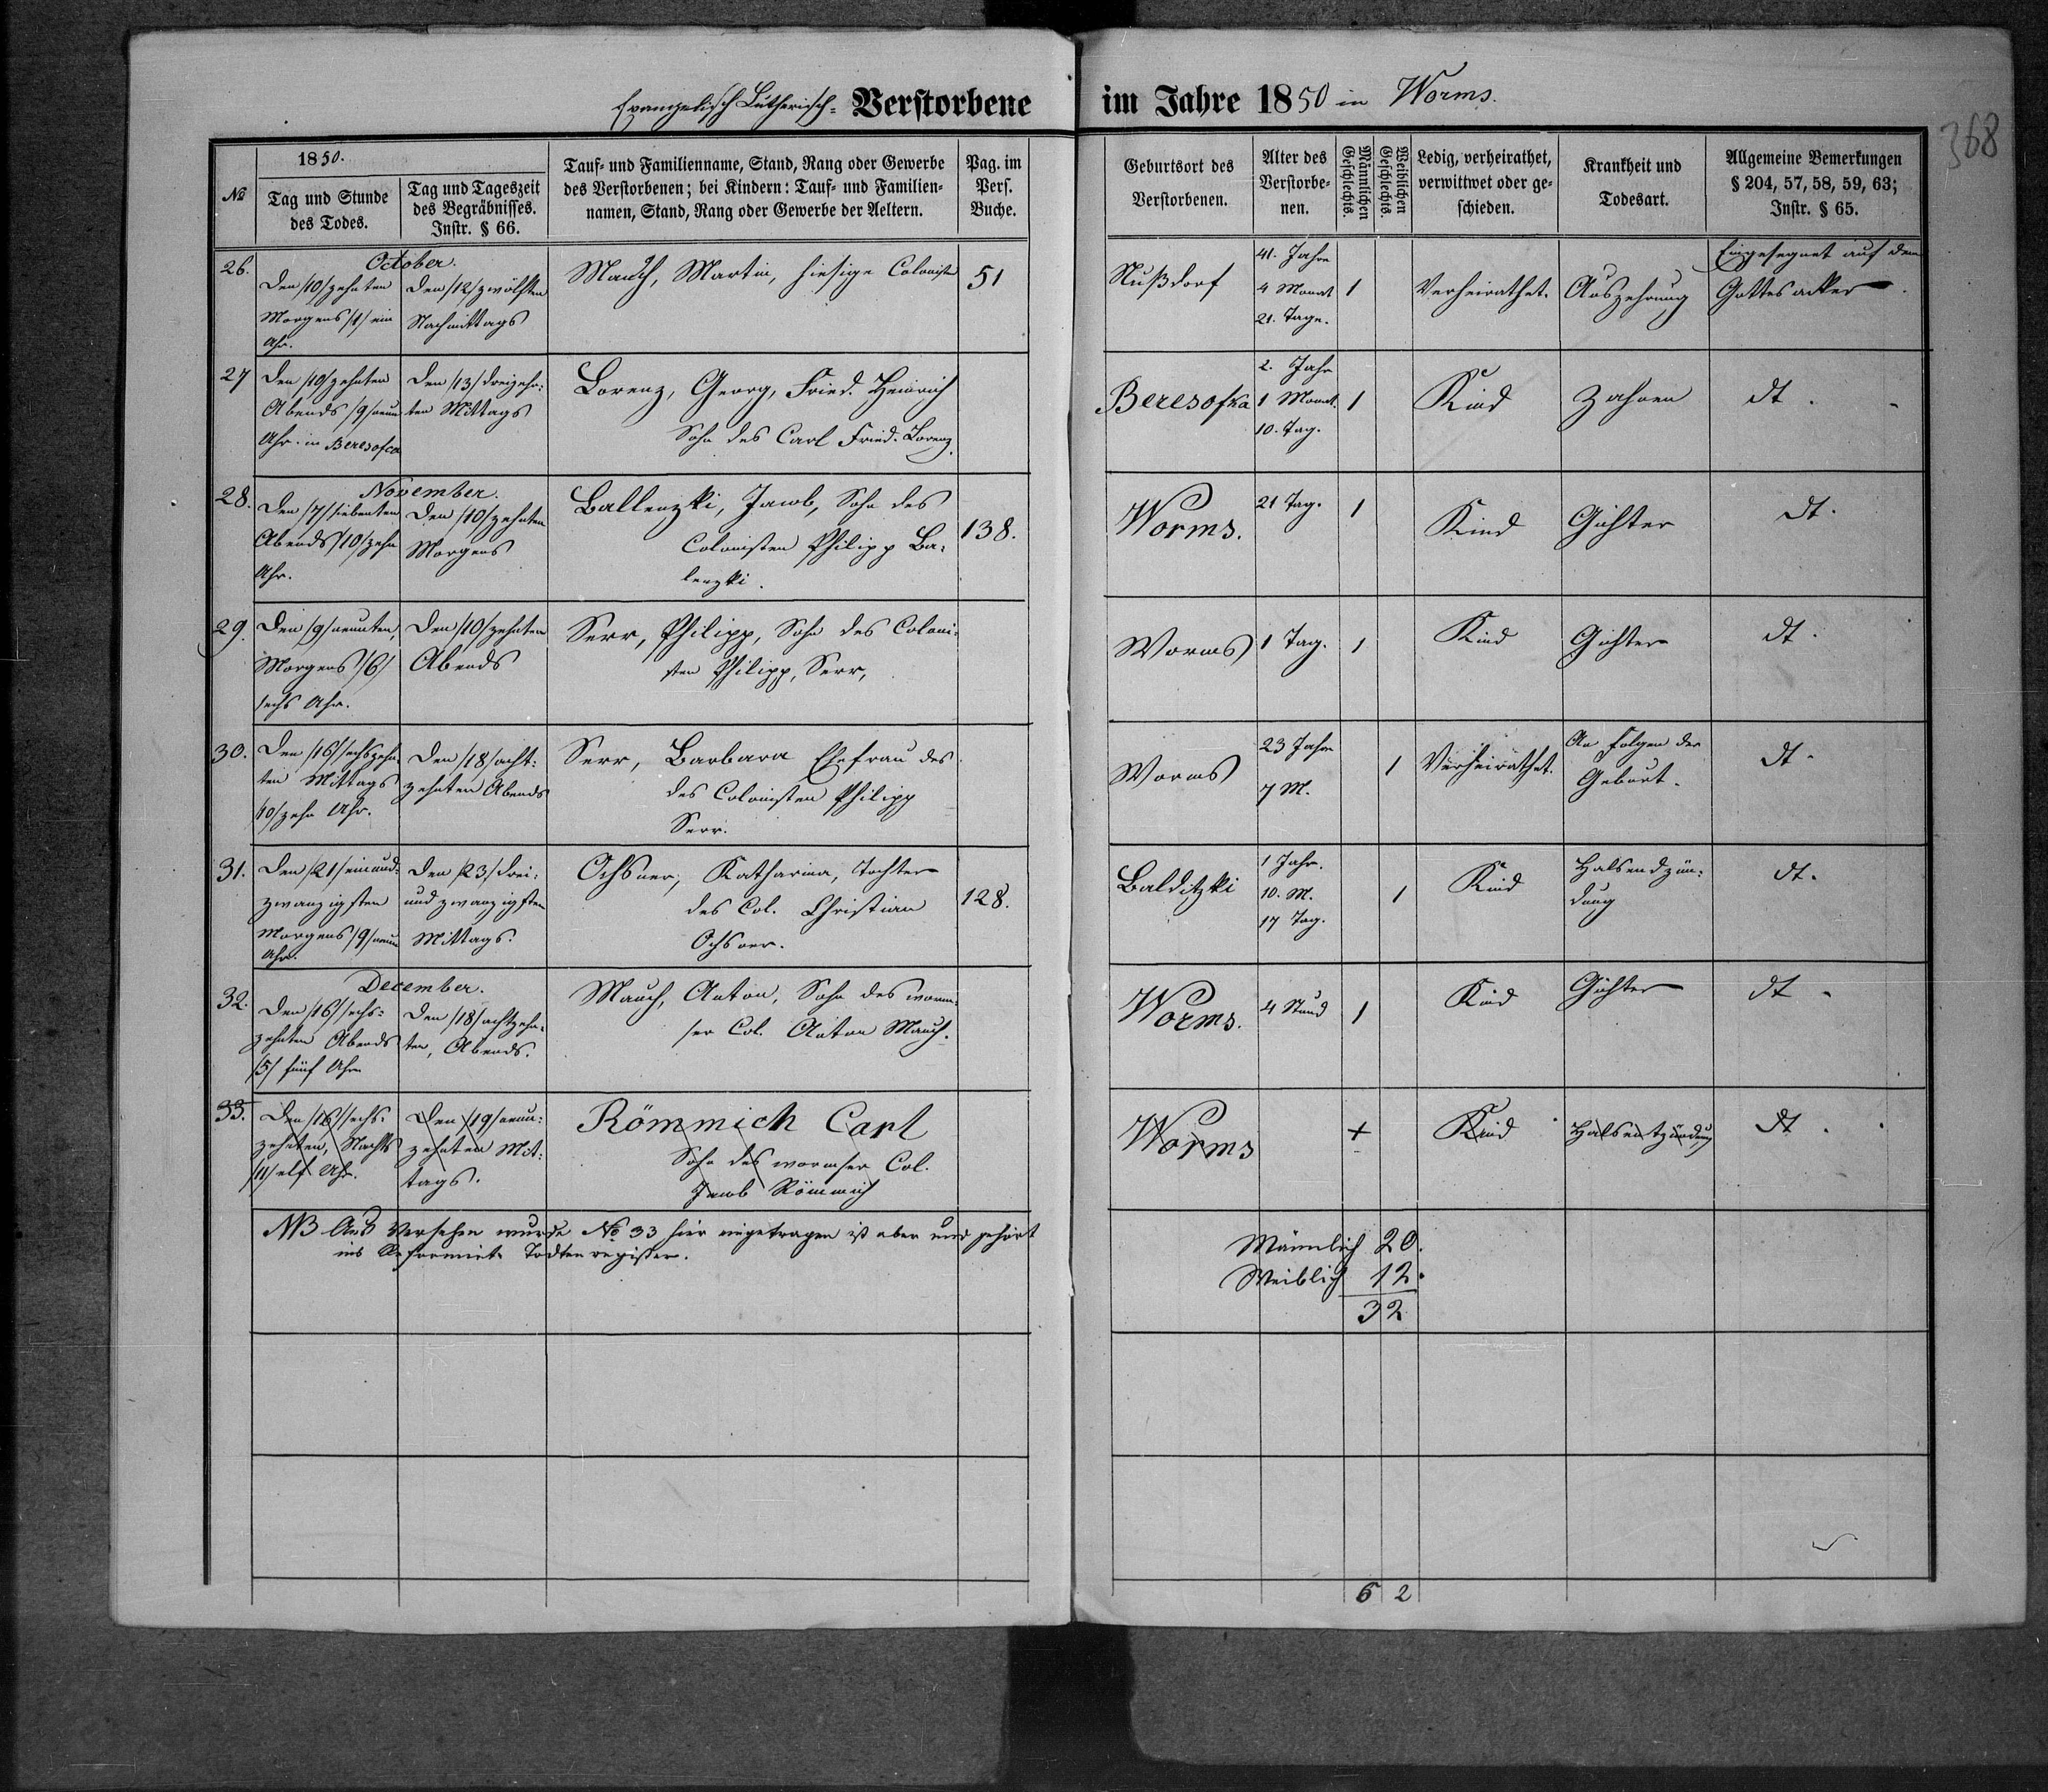 Evangelisch Lutherisch- Verstorbene im Jahre 1850 in Worms.
368
№
1850.
Tag und Stunde
des Todes.
Tag und Tageszeit
des Begräbnisses.
Instr. § 66.
Tauf- und Familienname, Stand, Rang oder Gewerbe
des Verstorbenen; bei Kindern: Tauf- und Familien-
namen, Stand, Rang oder Gewerbe der Aeltern.
Pag. im
Pers.
Buche.
Geburtsort des
Verstorbenen.
Alter des
Verstorbe-
nen.
Männlichen
Geschlechts.
Weiblichen
Geschlechts.
Ledig, verheirathet,
verwittwet oder ge-
schieden.
Krankheit und
Todesart.
Allgemeine Bemerkungen
§ 204, 57, 58, 59, 63;
Instr. § 65.
26.
October.
Den /10/ zehnten
Morgens /1/ ein
Uhr.
Den /12/ zwölften
Nachmittags
Mauch, Martin, hiesige Coloniste
51
Nußdorf
41. Jahre
4 Monat
21. Tage.
1
Verheirathet.
Auszehrung
Eingesegnet auf dem
Gottesacker
27
Den /10/ zehnten
Abends /9/ neun
Uhr. in Beresofca
Den /13/ dreizehn:
ten Mittags
Lorenz, Georg, Fried. Heinrich
Sohn des Carl Fried. Lorenz.
Beresofka
2. Jahr
1 Monat.
10. Tag.
1
Kind
Zahnen
dt.
28.
November.
Den /7/ siebenten
Abends /10/ zehn
Uhr.
Den /10/ zehnten
Morgens
Ballenzki, Jacob, Sohn des
Colonisten Philipp Ba-
lenzki.
138.
Worms.
21 Tag.
1
Kind
Gichter
dt.
29.
Den /9/ neunten,
Morgens /6/
sechs Uhr.
Den /10/ zehnten
Abends
Serr, Philipp, Sohn des Coloni-
sten Philipp, Serr,
Worms
1 Tag.
1
Kind
Gichter
dt.
30.
Den /16/ sechszehn-
ten Mittags
/10/ zehn Uhr.
Den /18/ acht:
zehnten Abends
Serr, Barbara Ehefrau des
des Colonisten Philipp
Serr.
Worms
23 Jahr
7 M.
1
Verheirathet.
An Folgen der
Geburt.
dt.
31.
Den /21/ einund-
zwanzigsten
Morgens /9/ neun
Uhr.
Den /23/ drei:
undzwanzigsten
Mittags.
Ochsner, Katharina, Tochter
des Col. Christian
Ochsner.
128.
Balditzki
1 Jahr.
10. M.
17 Tag.
1
Kind
Halsendzün:
dung
dt.
32.
December.
Den /16/ sechs=
zehnten Abends
/5/ fünf Uhr
Den /18/ achtzehn-
ten, Abends.
Mauch, Anton, Sohn des worm-
ser Col. Anton Mauch.
Worms.
4 Stund
1
Kind
Gichter
dt.
33.
Den /16/ sechs-
zehnten, Nachts
/11/ elf Uhr.
Den /19/ neun:
zehnten Mit:
tags.
Römmich Carl
Sohn des wormser Col.
Jacob Römmich
Worms
Kind
Halsentzündung
dt.
NB Aus Versehen wurde No 33 hier eingetragen ist aber und gehört
ins Reformirte Todtenregister.
Männlich 20.
Weiblich 12.
32
6 2